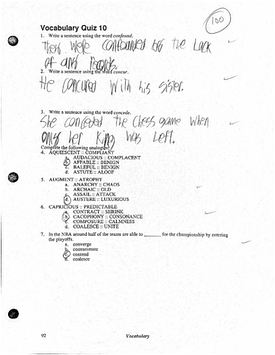 Vocabulary Quiz 10
100
1. Write a sentence using the word confound.
They were confounded by the Lack
of any People.
2. Write a sentence using the word concur.
He concured with his sister.
3. Write a sentence using the word concede.
She conceded the Chess game when
only her King was Left.
Complete the following analogies
4. ACQUIESCENT : COMPLIANT ::
a. AUDACIOUS : COMPLACENT
b. AFFABLE : BENIGN
c. BALEFUL : BENIGN
d. ASTUTE : ALOOF
5. AUGMENT : ATROPHY ::
a. ANARCHY : CHAOS
b. ARCHAIC : OLD
c. ASSAIL : ATTACK
d. AUSTERE : LUXURIOUS
6. CAPRICIOUS : PREDICTABLE ::
a. CONTRACT : SHRINK
b. CACOPHONY : CONSONANCE
c. COMPOSURE : CALMNESS
d. COALESCE : UNITE
7. In the NBA around half of the teams are able to ______ for the championship by entering
the playoffs.
a. converge
b. commensurate
c. contend
d. coalesce
92
Vocabulary